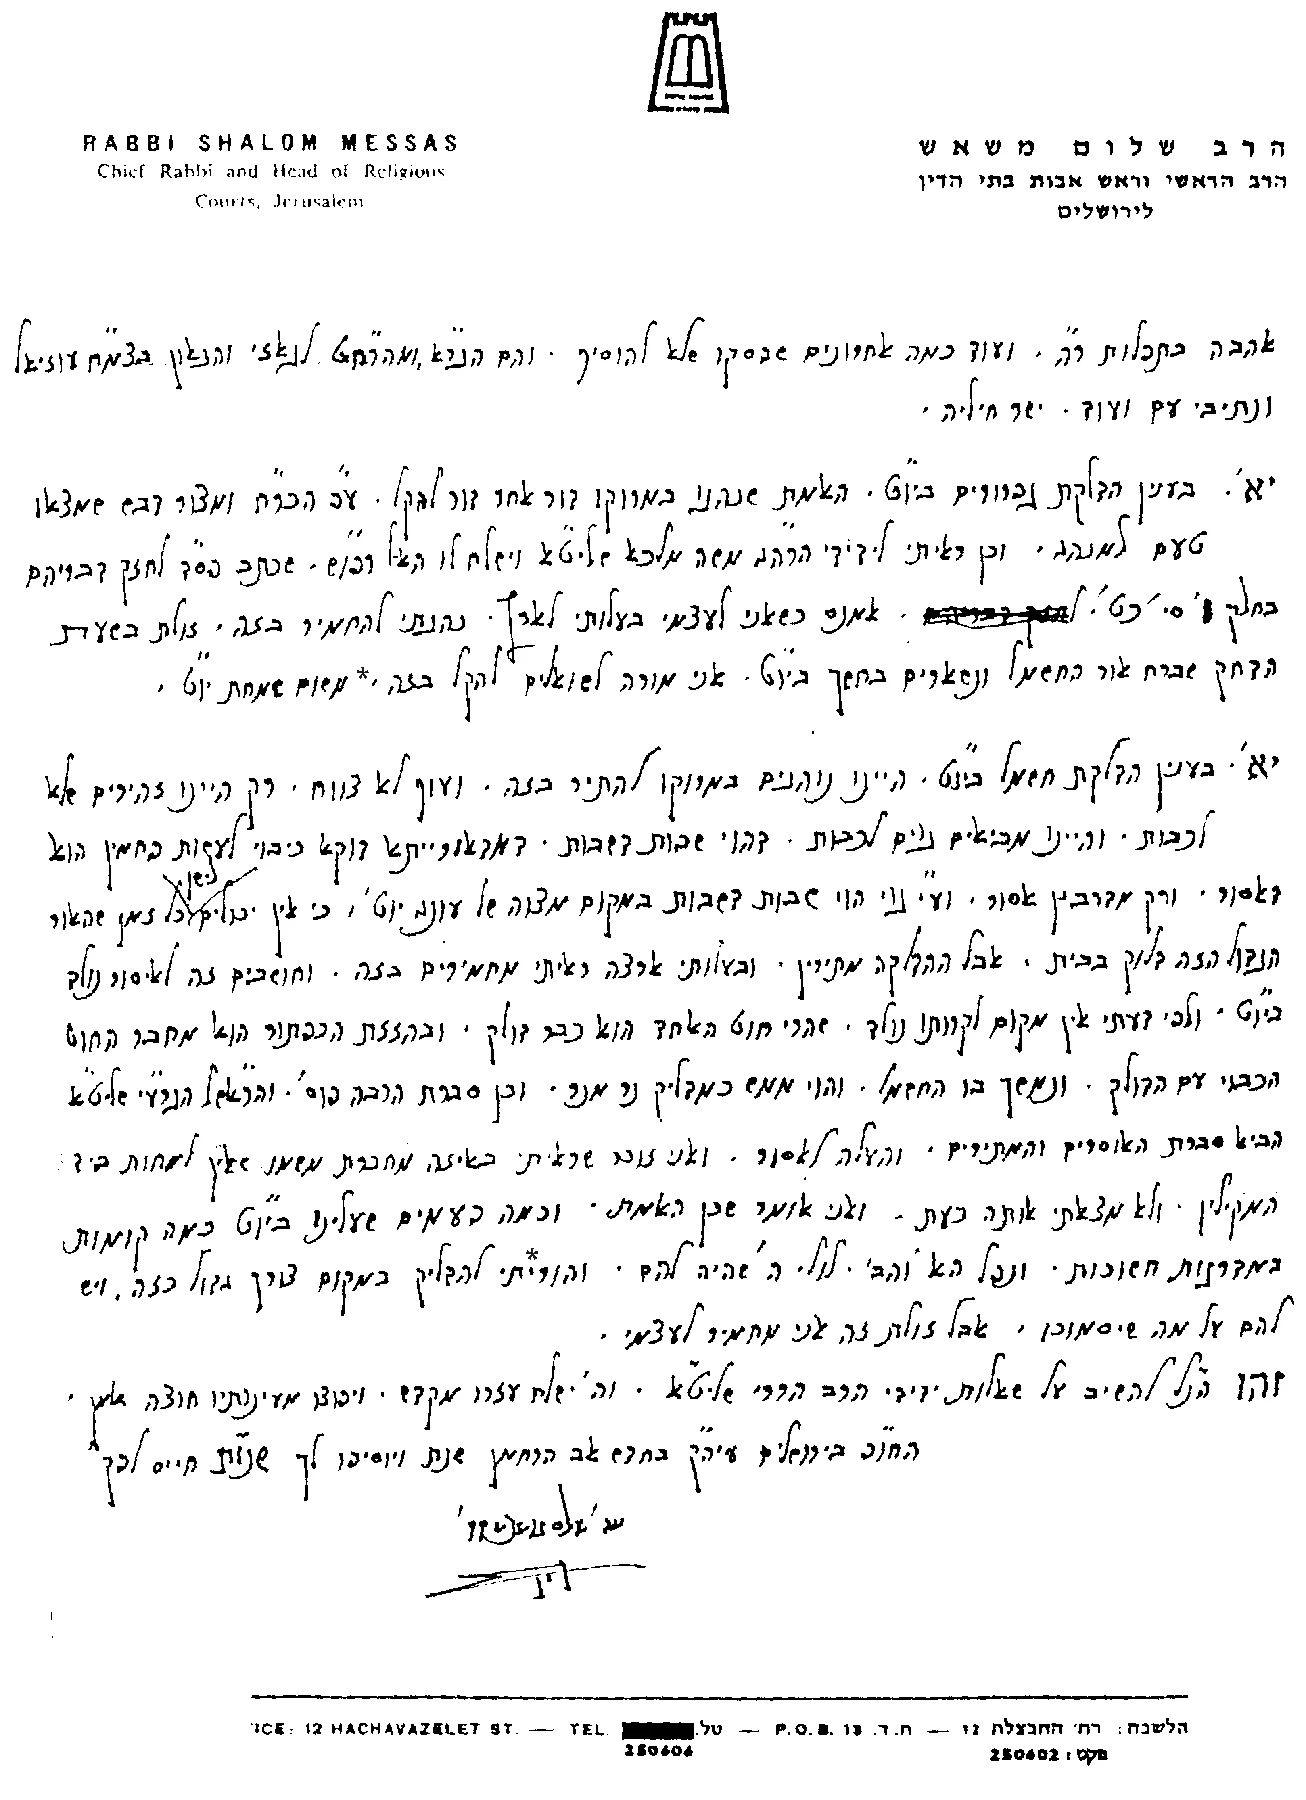 RABBI SHALOM MESSAS
Chief Rabbi and Head of Religious
Courts, Jerusalem
הרב שלום משאש
הרב הראשי וראש אבות בתי הדין
לירושלים
אהבה בתפלות ר"ה. ועוד כמה אחרונים שפסקו שלא להוסיף. והם הגר"א, ומהר"ח לנאזי והגאון בצמ"ח עוזיאל
ונתיבי עם ועוד. ישר חיליה.
יא'. בענין הדלקת גפרורים ביו"ט. האמת שנהגו במרוקו דור אחר דור להקל. ע"פ הכר"ח ומצור דבש שמצאו
טעם למנהג. וכן ראיתי לידידי הרה"ג משה מלכא שליט"א וישלח לו האל רפו"ש. שכתב פס"ד לחזק דבריהם
בחלק סי' כט'. אמנם כשאני לעצמי בעלותי לארץ. נהגתי להחמיר בזה. זולת בשעת
הדחק שברח אור החשמל ונשארים בחשך ביו"ט. אני מורה לשואלים להקל בזה.* משום שמחת יו"ט.
יא'. בענין הדלקת חשמל ביו"ט. היינו נוהגים במרוקו להתיר בזה. ועוף לא צווח. רק היינו זהירים שלא
לכבות. והיינו מביאים גוים לכבות. דהוי שבות דשבות. דמדאורייתא דוקא כיבוי לעשות פחמין הוא
דאסור. ורק מדרבנן אסור. וע"י גוי הוי שבות דשבות במקום מצוה של עונג יו"ט, כי אין יכולים לישן כל זמן שהאור
הגדול הזה דלוק בבית. אבל ההדלקה מתירין. ובעלותי ארצה ראיתי מחמירים בזה. וחושבים זה לאיסור נולד
ביו"ט. ולפי דעתי אין מקום לקרותו נולד. שהרי חוט האחד הוא כבר דולק. ובהזזת הכפתור הוא מחבר החוט
הכבוי עם הדולק. ונמשך בו החשמל. והוי ממש כמדליק נר מנר. וכן סברת הרבה פוס'. והראש"ל הגר"ע שליט"א
הביא סברת האוסרים והמתירים. והעלה לאסור. ואני זוכר שראיתי באיזה מחברת משמו שאין למחות ביד
המקילין. ולא מצאתי אותה כעת. ואני אומר שכן האמת. וכמה פעמים שעלינו ביו"ט כמה קומות
במדרגות חשוכות. ונפל הא' והב'. לולי ה' שהיה להם. והוריתי* להדליק במקום צורך גדול כזה, ויש
להם על מה שיסמוכו. אבל זולת זה אני מחמיר לעצמי.
זהו הנ"ל להשיב על שאלות ידידי הרב הדרי שליט"א. וה' ישלח עזרו מקדש. ויפוצו מעינותיו חוצה אמן.
החו"פ בירושלים עיה"ק בחדש אב הרחמן שנת ויוסיפו לך שנות חיים לפ"ק
ICE: 12 HACHAVAZELET ST. — TEL. טל. — P.O.B. 13 ת.ד. — הלשכה: רח' החבצלת 12
250404
פקס: 250402